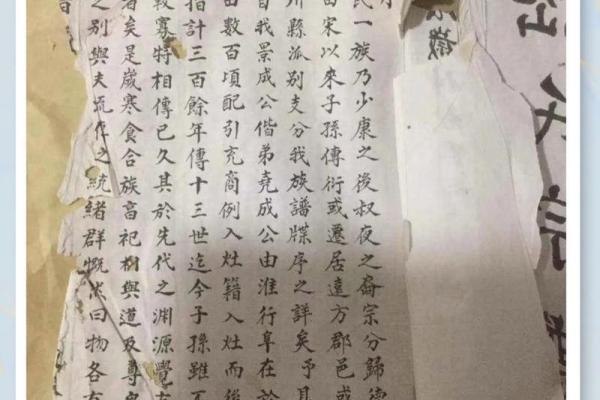 氏宗
徽
氏一族乃少康之後叔夜之裔宗分歸德
宋以來子孫傳衍或遷居遠方郡邑或
州縣派別支分我族譜牒序之詳矣予
自我景成公偕弟堯成公由淮行阜在於
田數百頃配引充商例入灶籍入灶而後
指計三百餘年傳十三世迄今子孫雖不
寡特相傳已久其於先代之淵源覺有
矣是歲寒食合族畜祀與道及尊卑
之別與夫流作之統緒群慨然曰物各有